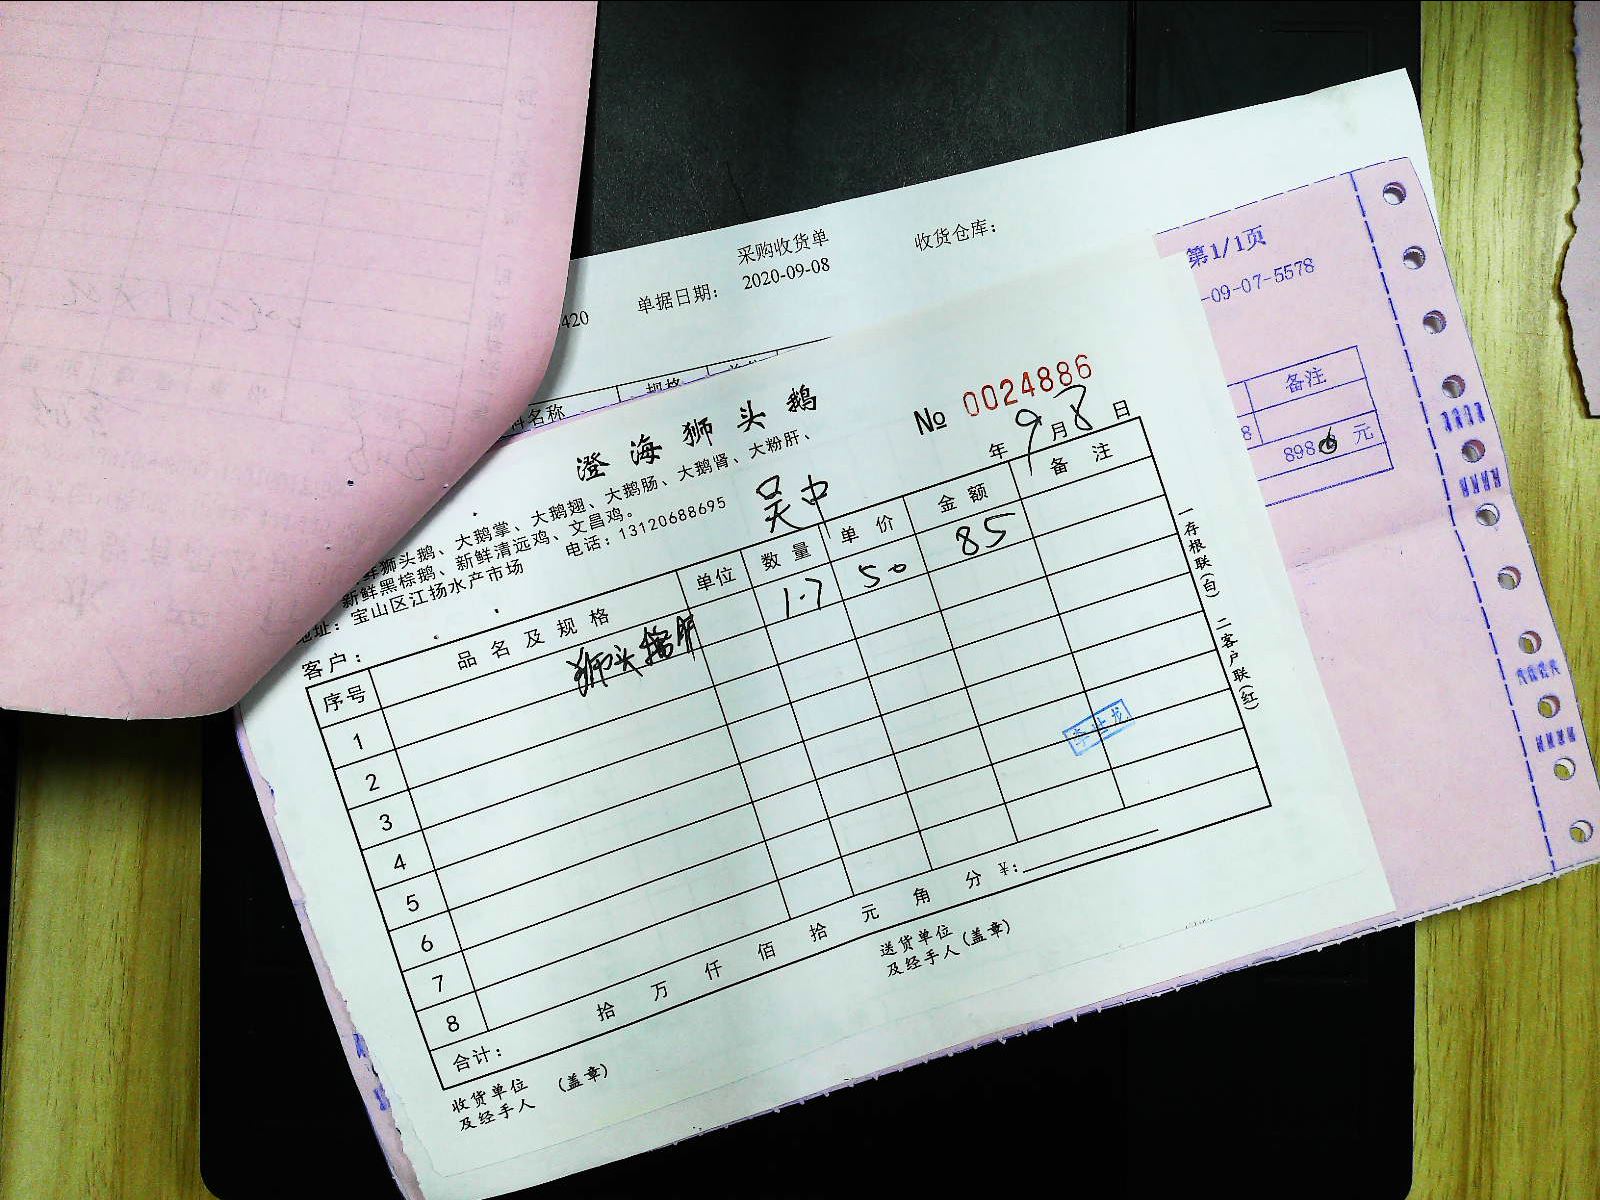 采购收货单
收货仓库：
单据日期： 2020-09-08
420
第1/1页
-09-07-5578
料名称 规格
备注
8
898 元
澄海狮头鹅
№ 0024886
狮头鹅、大鹅掌、大鹅翅、大鹅肠、大鹅肾、大粉肝、
新鲜黑棕鹅、新鲜清远鸡、文昌鸡。
地址：宝山区江扬水产市场 电话：13120688695
客户： 吴中 年 9 月 8 日
序号 品名及规格 单位 数量 单价 金额 备注
1 狮头 1.7 50 85
2
3
4
5
6
7
8
合计： 拾 万 仟 佰 拾 元 角 分 ¥:
收货单位
及经手人 （盖章）
送货单位
及经手人（盖章）
一存根联（白） 二客户联（红）